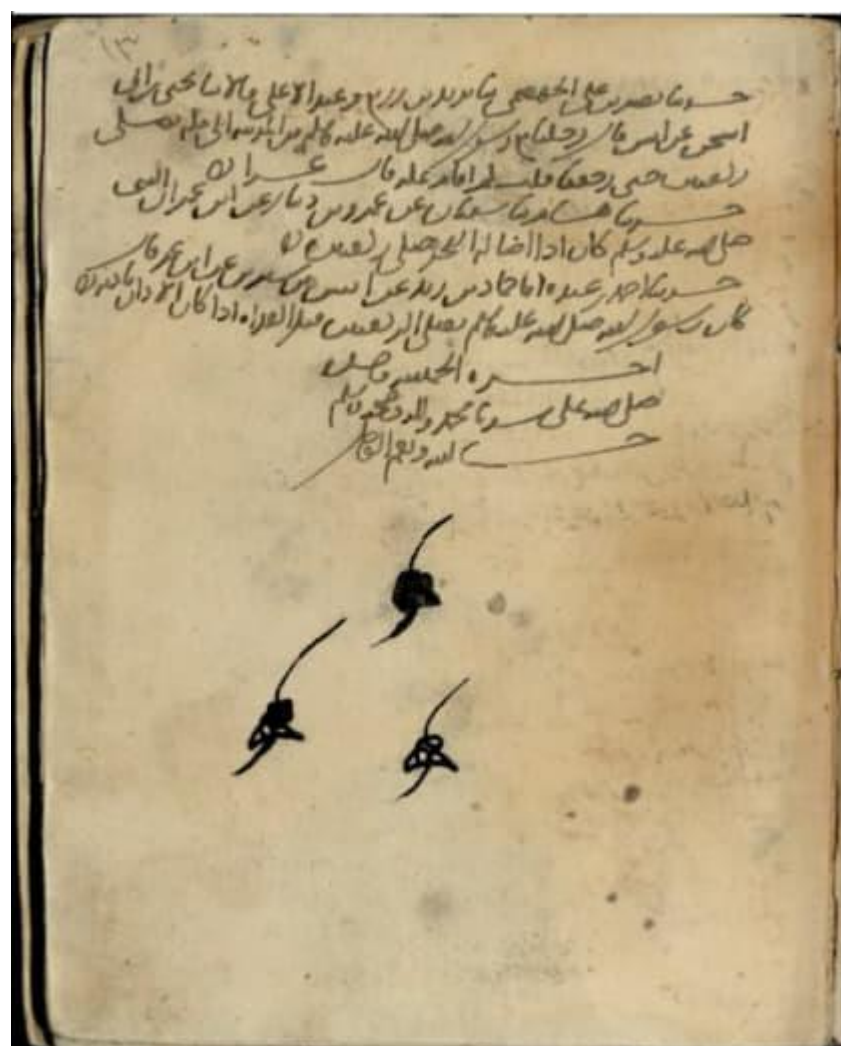 ١٣
حدثنا نصر بن علي الجهضمي ثنا يزيد بن زريع وعبد الاعلى قالا ثنا يحيى بن ابي
اسحق عن انس قال خرجنا مع رسول الله صلى الله عليه وسلم من المدينة الى مكة فصلى
ركعتين حتى رجعنا قلت كم اقام بمكة قال عشرا
حدثنا هشام ثنا سفيان عن عمرو بن دينار عن ابن عمر ان النبي
صلى الله عليه وسلم كان اذا اضا له الفجر صلى ركعتين
حدثنا احمد بن عبدة انا حماد بن زيد عن انس بن سيرين عن ابن عمر قال
كان رسول الله صلى الله عليه وسلم يصلي الركعتين قبل الغداة اذا كان الاذان باذنيه
اخره الحمد لله
صلى الله على سيدنا محمد واله وصحبه وسلم
حسبنا الله ونعم الوكيل